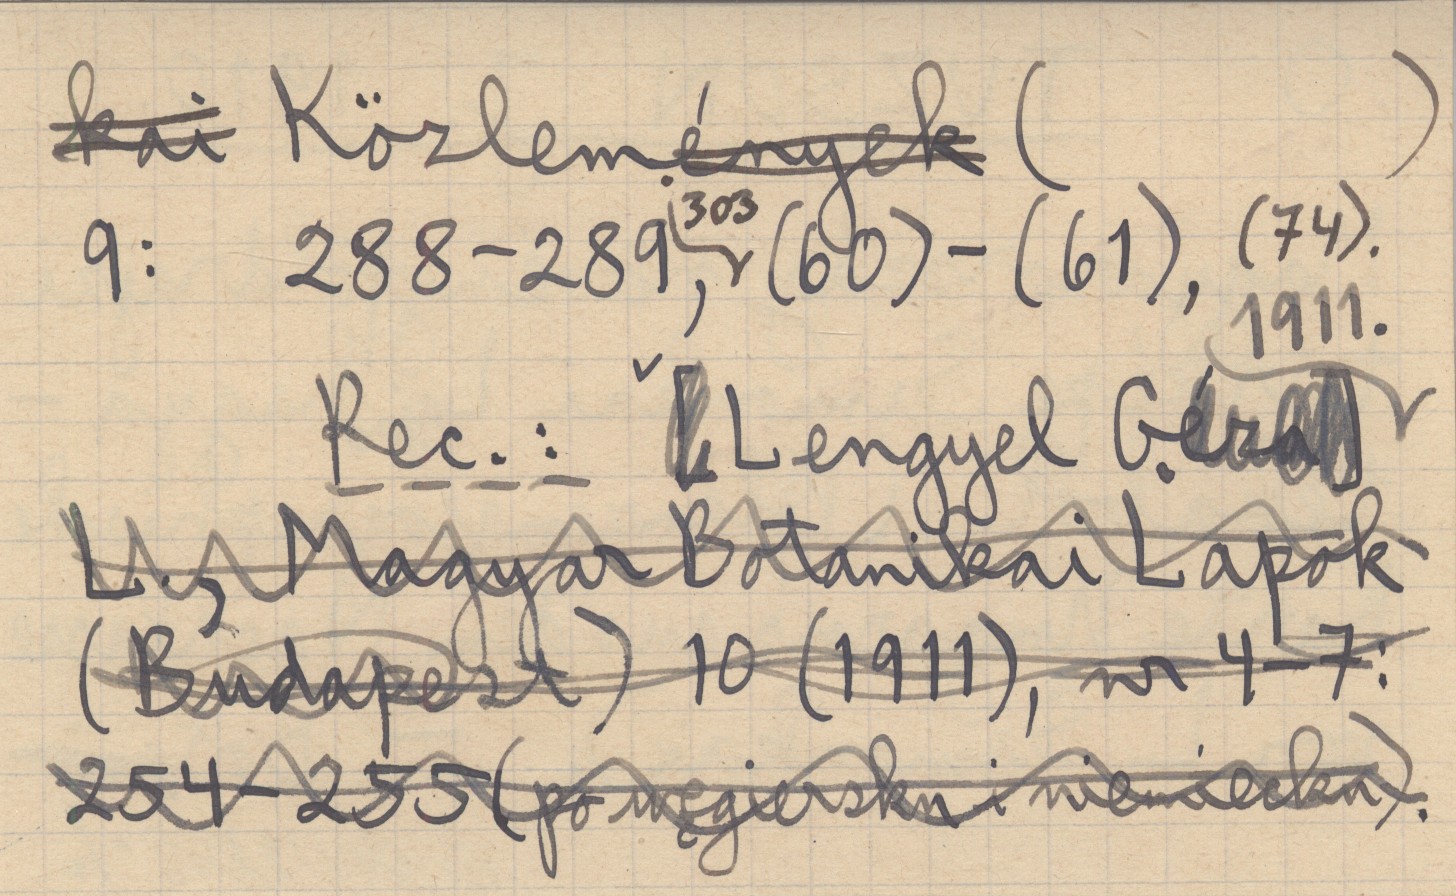 kai Közlemények (          )
9: 288-289, 303 (60)-(61), (74).
1911.
Rec.: [Lengyel Géza]
L., Magyar Botanikai Lapok
(Budapest) 10 (1911), nr 4-7:
254-255 (po węgiersku i niemiecku).